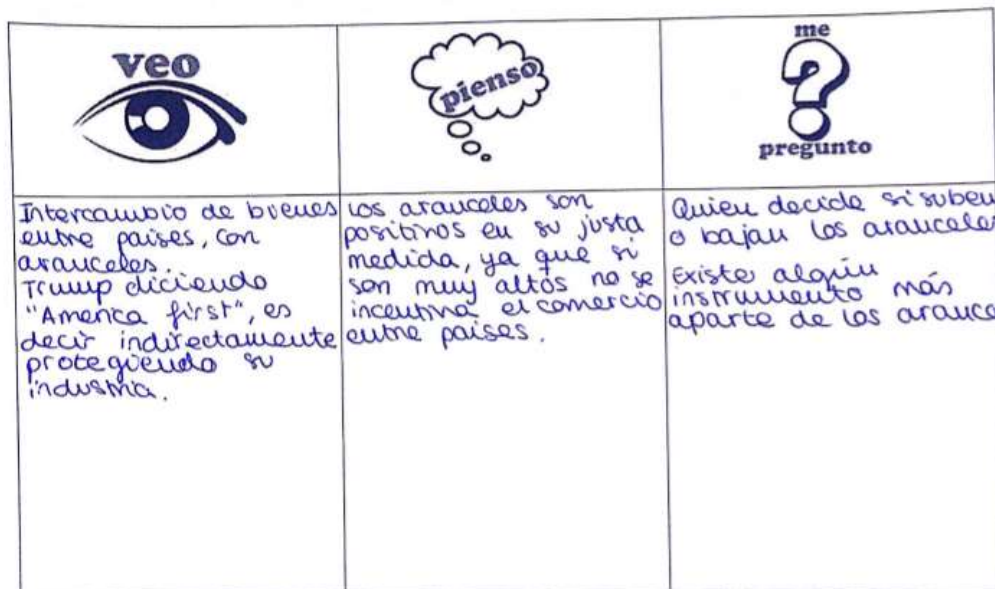 veo
Intercambio de bienes
entre países, con
aranceles.
Trump diciendo
"America first", es
decir indirectamente
protegiendo su
industria.
pienso
Los aranceles son
positivos en su justa
medida, ya que si
son muy altos no se
incentiva el comercio
entre países.
me
?
pregunto
Quien decide si suben
o bajan los aranceles
Existe algún
instrumento más
aparte de los arance